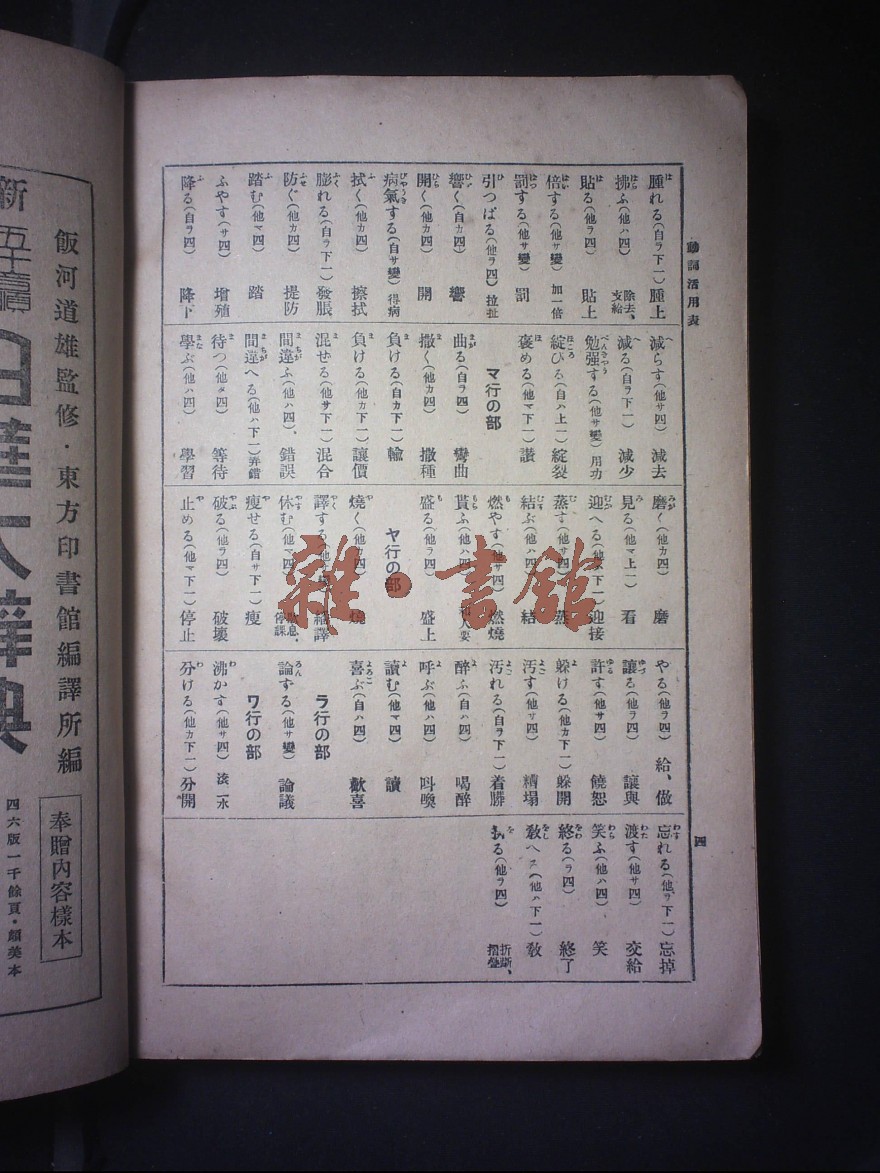 動詞活用表
腫れる(自ラ下一)腫上
拂ふ(他ハ四)除去、支給
貼る(他ラ四)貼上
倍する(他サ變)加一倍
罰する(他サ變)罰
引つぱる(他ラ四)拉扯
響く(自カ四)響
開く(他カ四)開
病氣する(自サ變)得病
拭く(他カ四)擦拭
膨れる(自ラ下一)發脹
防ぐ(他カ四)提防
踏む(他マ四)踏
ふやす(サ四)增殖
降る(自ラ四)降下
減らす(他サ四)減去
減る(自ラ下一)減少
勉强する(他サ變)用功
綻びる(自ハ上一)綻裂
褒める(他マ下一)讃
マ行の部
曲る(自ラ四)彎曲
撒く(他カ四)撒種
負ける(自カ下一)輸
負ける(他カ下一)讓價
混ぜる(他サ下一)混合
間違ふ(他ハ四)、錯誤
間違へる(他ハ下一)弄錯
待つ(他タ四)等待
學ぶ(他ハ四)學習
磨く(他カ四)磨
見る(他マ上一)看
迎へる(他ハ下一)迎接
蒸す(他サ四)蒸
結ぶ(他ハ四)結
燃やす(他サ四)燃燒
貰ふ(他ハ四)人要
盛る(他ラ四)盛上
ヤ行の部
燒く(他カ四)燒
譯する(他サ變)繙譯
休む(他マ四)歇息、停課
瘦せる(自サ下一)瘦
破る(他ラ四)破壞
止める(他マ下一)停止
やる(他ラ四)給、做
讓る(他ラ四)讓與
許す(他サ四)饒恕
躱ける(他カ下一)躱開
汚す(他サ四)糟塌
汚れる(自ラ下一)着髒
醉ふ(自ハ四)喝醉
呼ぶ(他ハ四)呌喚
讀む(他マ四)讀
喜ぶ(自ハ四)歡喜
ラ行の部
論ずる(他サ變)論議
ワ行の部
沸かす(他サ四)滾一水
分ける(他カ下一)分開
忘れる(他ラ下一)忘掉
渡す(他サ四)交給
笑ふ(他ハ四)笑
終る(ラ四)終了
敎へる(他ハ下一)敎
る(他ラ四)折斷、摺疊
四
雜·書館
飯河道雄監修·東方印書館編譯所編
奉贈內容樣本
新
日華大辭典
四六版一千餘頁·顔美本